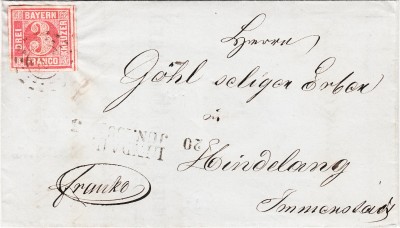 BAYERN
DREI
3
KREUZER
FRANCO
Herrn
Göhl seliger Erben
in
Hindelang
Immenstadt
franko
LINDAU
JUN.
20